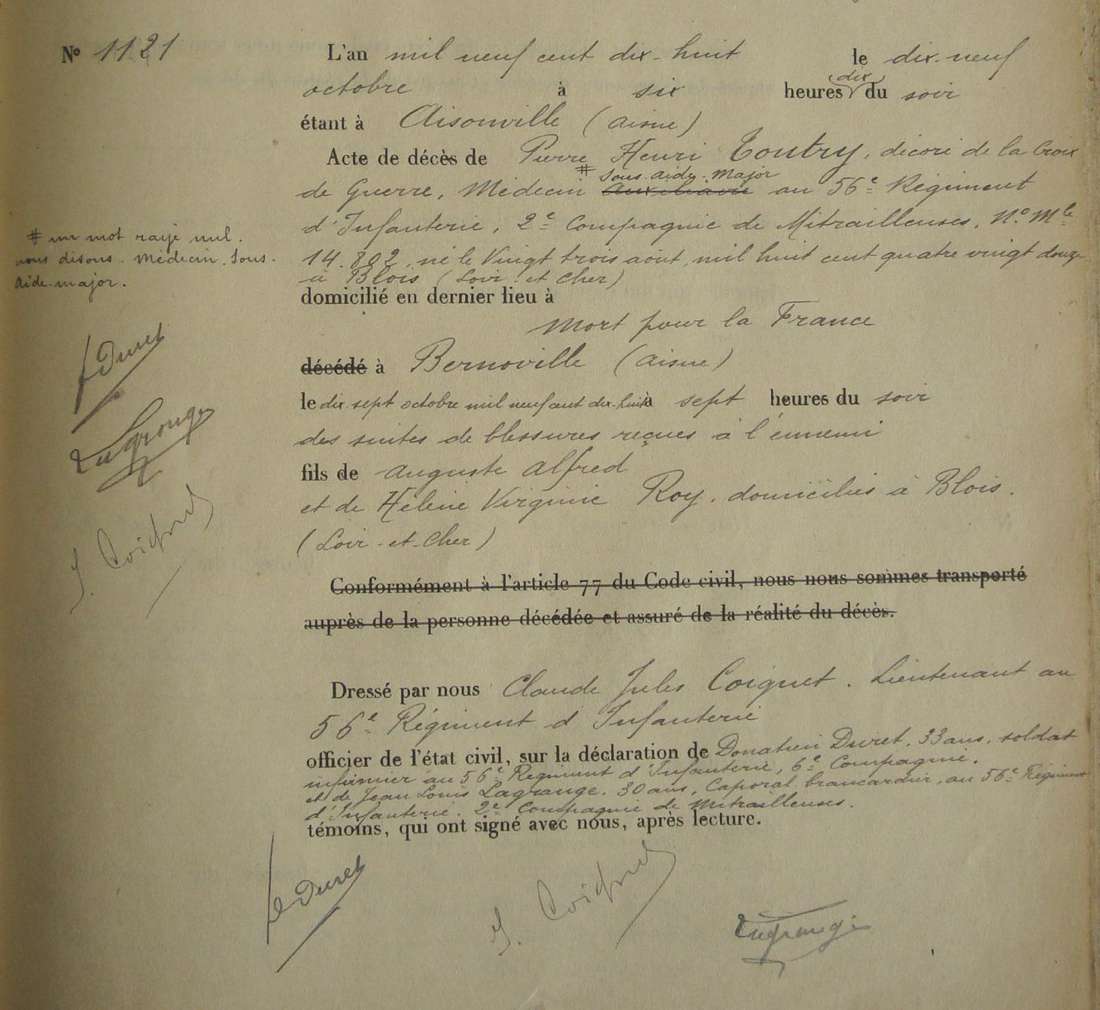 N° 1121
L'an mil neuf cent dix-huit le dix-neuf
octobre à six heures dix du soir
étant à Aisonville (Aisne)
Acte de décès de Pierre Henri Toutry, décoré de la Croix
de Guerre, Médecin # Sous-Aide-Major Auxiliaire au 56e Régiment
d'Infanterie, 2e Compagnie de Mitrailleuses, No Mle
14.802, né le Vingt trois août, mil huit cent quatre vingt douze
à Blois (Loir et Cher)
domicilié en dernier lieu à
Mort pour la France
décédé à Bernoville (Aisne)
le dix sept octobre mil neuf cent dix-huit à sept heures du soir
des suites de blessures reçues à l'ennemi
fils de Auguste Alfred
et de Hélène Virginie Roy, domiciliés à Blois.
(Loir-et-Cher)
Conformément à l'article 77 du Code civil, nous nous sommes transporté
auprès de la personne décédée et assuré de la réalité du décès.
Dressé par nous Claude Jules Coignet. Lieutenant au
56e Régiment d'Infanterie
officier de l'état civil, sur la déclaration de Donatien Duret, 33 ans, soldat
infirmier au 56e Régiment d'Infanterie, 6e Compagnie.
et de Jean Louis Lagrange. 30 ans, Caporal brancardier, au 56e Régiment
d'Infanterie. 2e Compagnie de Mitrailleuses.
témoins, qui ont signé avec nous, après lecture.
# un mot rayé nul.
nous disons. Médecin. Sous-
Aide-major.
Duret
Lagrange
J. Coignet
Duret
J. Coignet
Lagrange